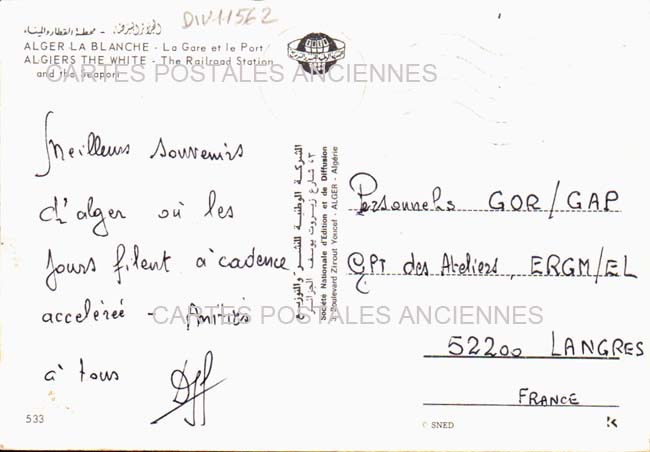 DIV11562
الجزائر البيضاء - محطة القطار والميناء
ALGER LA BLANCHE - La Gare et le Port
ALGIERS THE WHITE - The Railroad Station
and the Seaport
CARTES POSTALES ANCIENNES
Meilleurs souvenirs
d'alger où les
jours filent à cadence
accelérée - Amitiés
à tous
533
الشركة الوطنية للنشر والتوزيع
٤٣ شارع زيروت يوسف الجزائر
Société Nationale d'Edition et de Diffusion
Boulevard Zirrout Youcef - ALGER - Algérie
Personnels GOR/GAP
GPT des Ateliers, ERGM/EL
CARTES POSTALES ANCIENNES
52200 LANGRES
FRANCE
© SNED